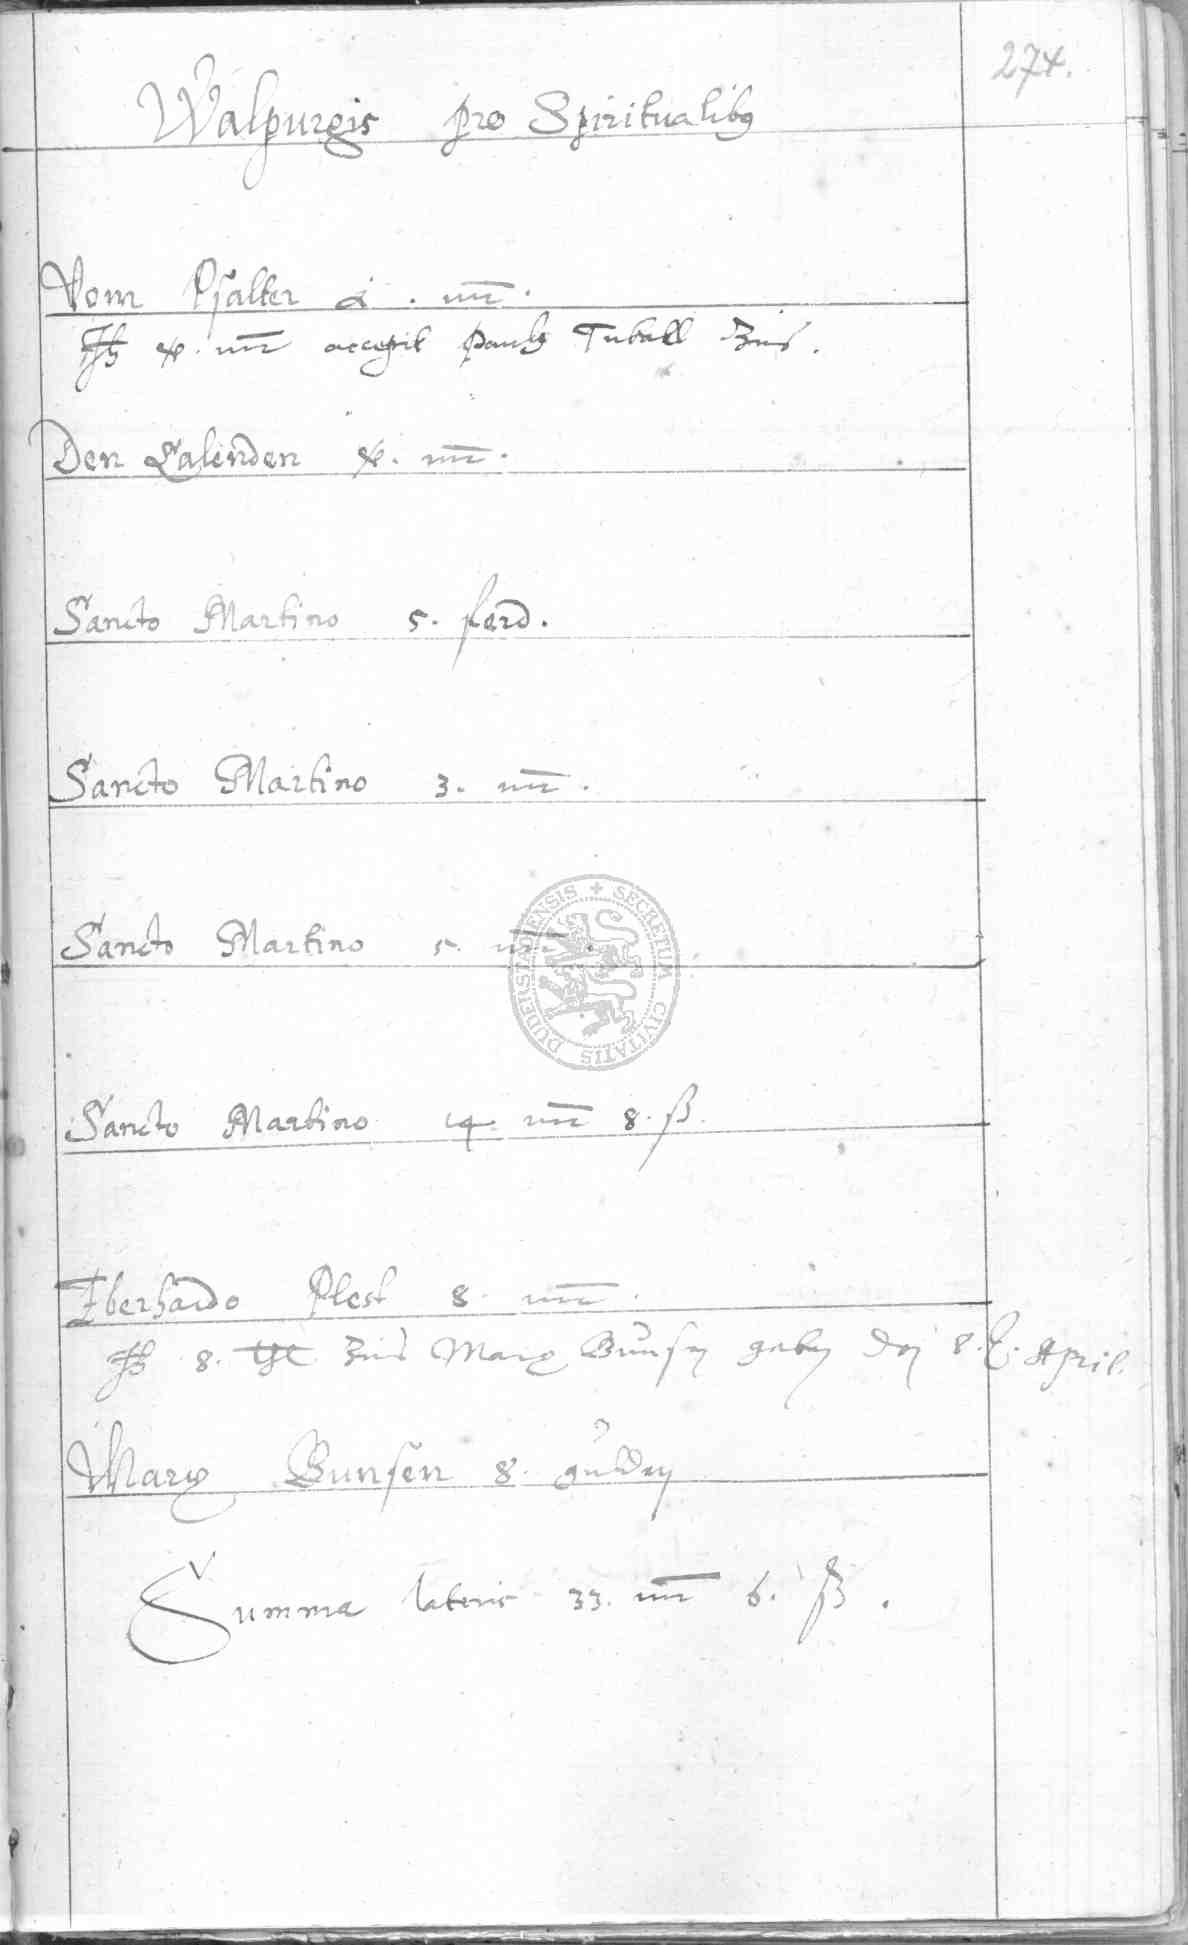 274.
Walpurgis pro Spiritualibꝰ
Vom Psalter . mr .
accepit Paulꝰ Tuball Zins .
Den Calenden . mr .
Sancto Martino 5. ferd .
Sancto Martino 3. mr .
Sancto Martino 5. mr .
Sancto Martino 4 mr 8. ß .
Eberhardo Plest 8 mr .
8. Zins Marx Bunsen geben den 8. April.
Marx Bunsen 8. gulden
Summa lateris 33. mr 6. ß .
SECRETUM CIVITATIS DUDERSTADENSIS